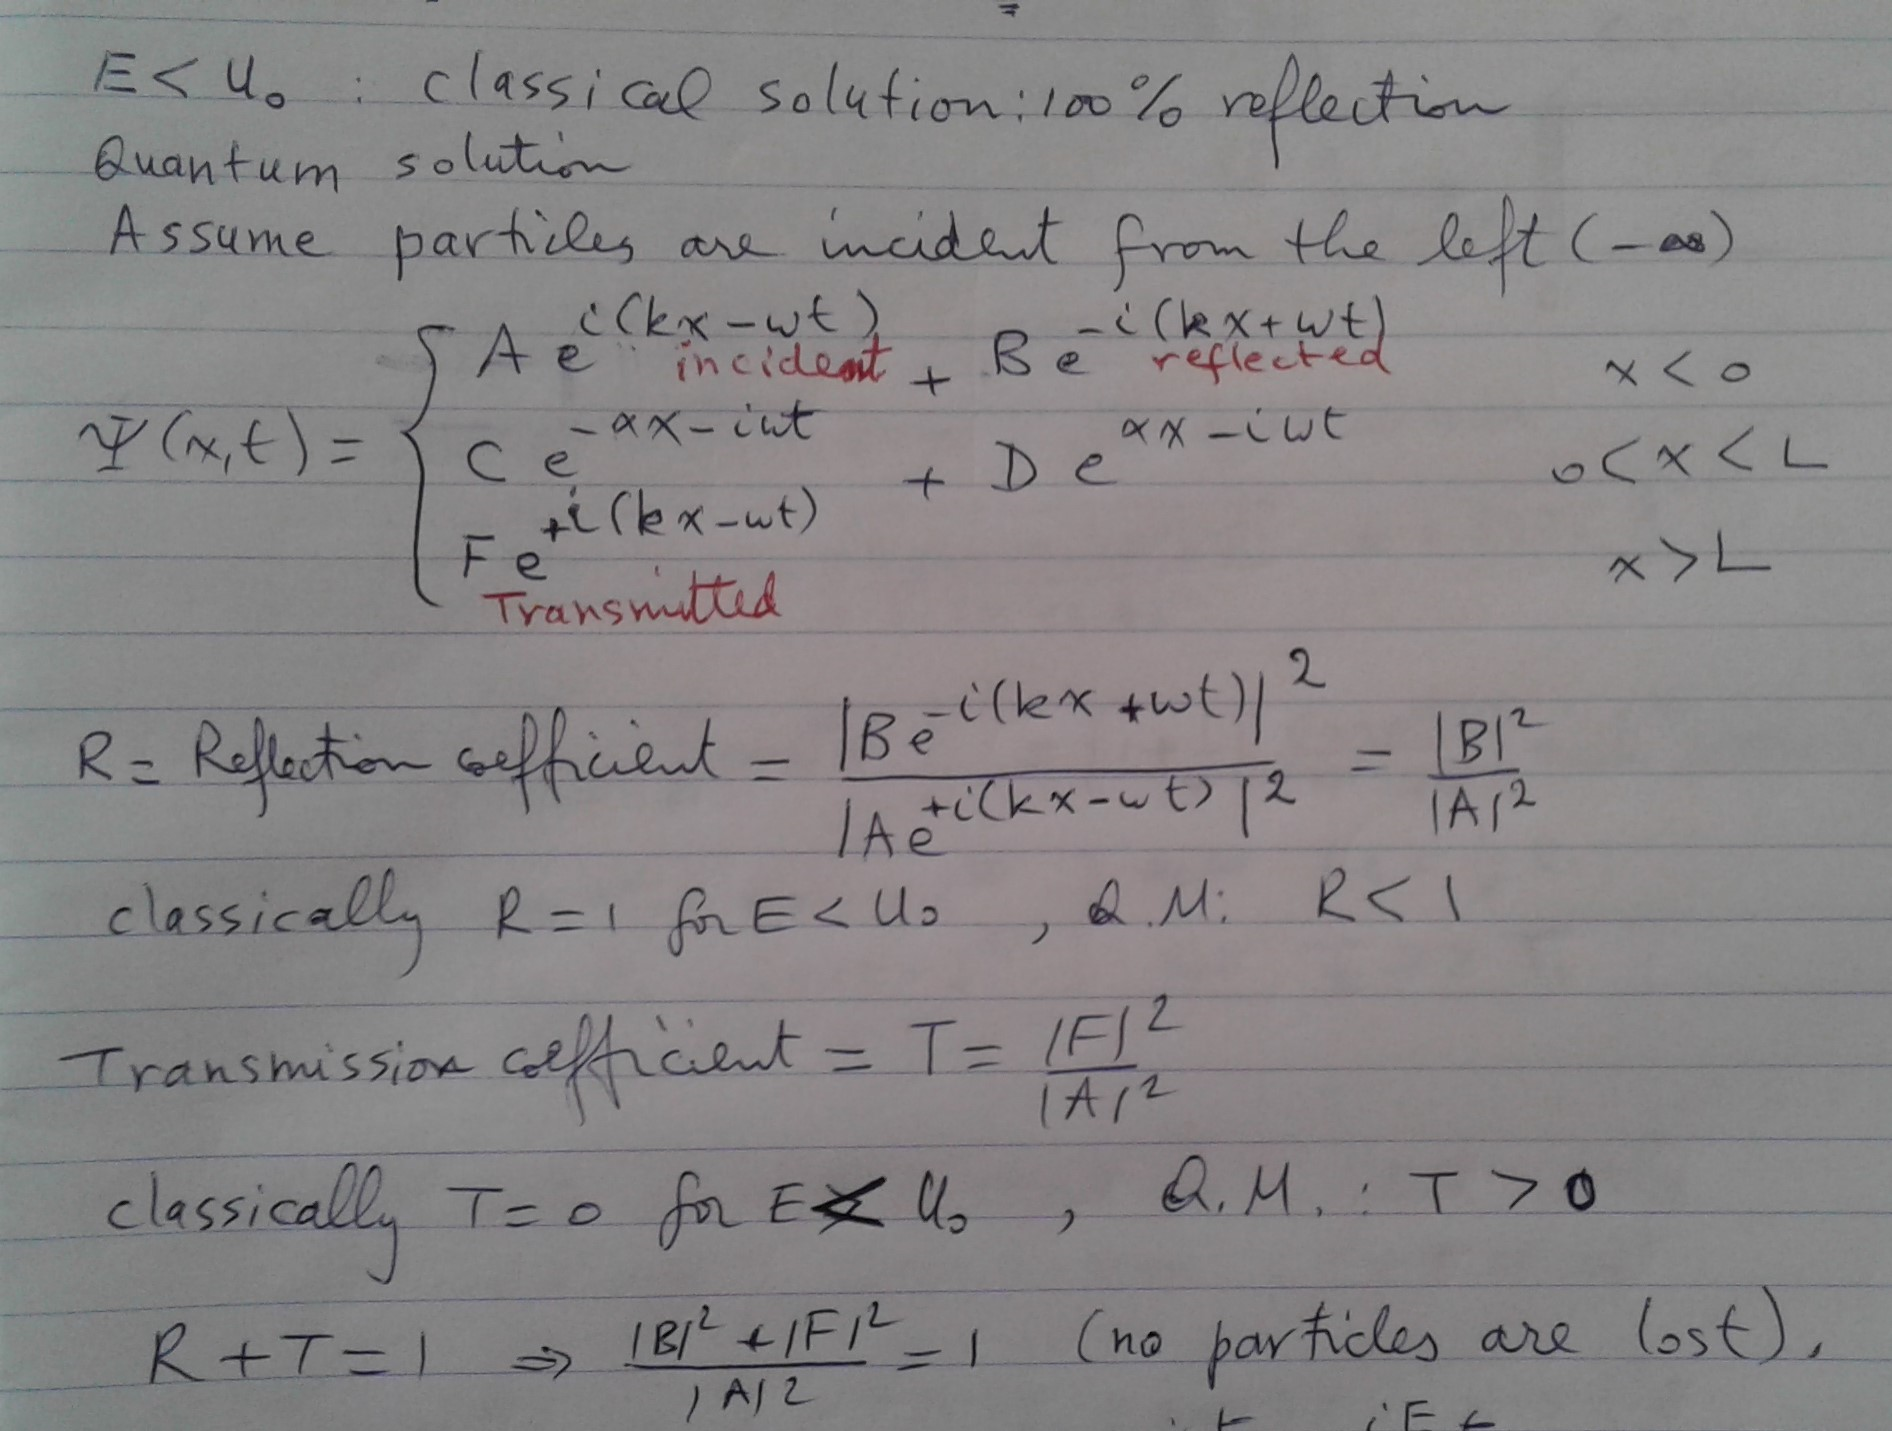 E < U₀ : classical solution: 100% reflection
Quantum solution
Assume particles are incident from the left (-∞)
Ψ(x,t) = { A e^{i(kx-ωt)} incident + B e^{-i(kx+ωt)} reflected x < 0
C e^{-αx-iωt} + D e^{αx-iωt} 0 < x < L
F e^{+i(kx-ωt)} x > L
Transmitted
R = Reflection coefficient = |B e^{-i(kx+ωt)}|² / |A e^{+i(kx-ωt)}|² = |B|² / |A|²
classically R = 1 for E < U₀ , Q.M: R < 1
Transmission coefficient = T = |F|² / |A|²
classically T = 0 for E < U₀ , Q.M. : T > 0
R + T = 1 ⇒ (|B|² + |F|²) / |A|² = 1 (no particles are lost).